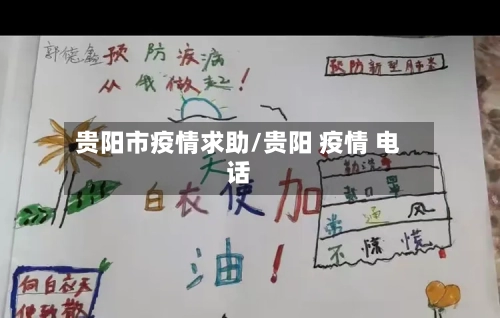 郭能鑫预防疾病
从我做起！
预防新型肺炎
贵阳市疫情求助/贵阳 疫情 电
话
天
白衣使加
油！
勤洗手
戴口罩
常通风
不慌慌
向白衣天
使致敬